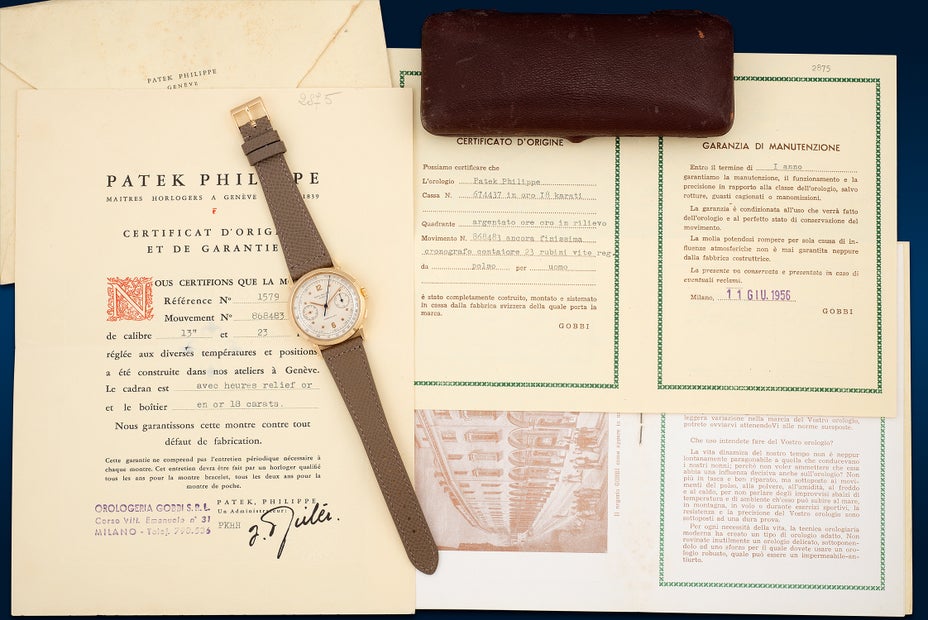 PATEK PHILIPPE
GENÈVE
2875
PATEK PHILIPPE
MAITRES HORLOGERS A GENÈVE 1839
CERTIFICAT D'ORIG
ET DE GARANTIE
NOUS CERTIFIONS QUE LA MO
Référence Nº 1579
Mouvement Nº 868483
de calibre 13''' et 23
réglée aux diverses températures et positions
a été construite dans nos ateliers à Genève.
Le cadran est avec heures relief or
et le boîtier en or 18 carats.
Nous garantissons cette montre contre tout
défaut de fabrication.
Cette garantie ne comprend pas l'entretien périodique nécessaire à
chaque montre. Cet entretien devra être fait par un horloger qualifié
tous les ans pour la montre bracelet, tous les deux ans pour la
montre de poche.
PATEK, PHILIPPE
Un Administrateur:
PKHH
OROLOGERIA GOBBI S.R.L.
Corso Vitt. Emanuele n° 31
MILANO - Telef. 790.536
CERTIFICATO D'ORIGINE
Possiamo certificare che
L'orologio Patek Philippe
Cassa N. 674437 in oro 18 karati
Quadrante argentato ore oro in rilievo
Movimento N. 868481 ancora finissima
cronografo contatore 23 rubini vite reg.
da polso per uomo
è stato completamente costruito, montato e sistemato
in cassa dalla fabbrica svizzera della quale porta la
marca.
GOBBI
2875
GARANZIA DI MANUTENZIONE
Entro il termine di I anno
garantiamo la manutenzione, il funzionamento e la
precisione in rapporto alla classe dell'orologio, salvo
rotture, guasti cagionati o manomissioni.
La garanzia è condizionata all'uso che verrà fatto
dell'orologio e al perfetto stato di conservazione del
movimento.
La molla potendosi rompere per sola causa di in-
fluenze atmosferiche non è mai garantita neppure
dalla fabbrica costruttrice.
La presente va conservata e presentata in caso di
eventuali reclami.
Milano, 11 GIU. 1956
GOBBI
leggera variazione nella marcia del Vostro orologio,
potrete ovviarvi attenendoVi alle norme suesposte.
Che uso intendete fare del Vostro orologio?
La vita dinamica del nostro tempo non è neppur
lontanamente paragonabile a quella che conducevano
i nostri nonni; perchè non voler ammettere che essa
abbia una influenza decisiva anche sull'orologio? Non
più in tasca e ben riparato, ma sottoposto ai movi-
menti del polso, alla polvere, all'umidità, al freddo
e al caldo, per non parlare degli improvvisi sbalzi di
temperatura e di ambiente ch'esso può subire al mare,
in montagna, in volo o durante esercizi sportivi, la
resistenza e la precisione del Vostro orologio sono
sottoposti ad una dura prova.
Per ogni necessità della vita, la tecnica orologiaria
moderna ha creato un tipo di orologio adatto. Non
rovinate inutilmente un orologio delicato, sottoponen-
dolo ad uno sforzo per il quale dovete usare un oro-
logio robusto, quale può essere un impermeabile-an-
tiurto.